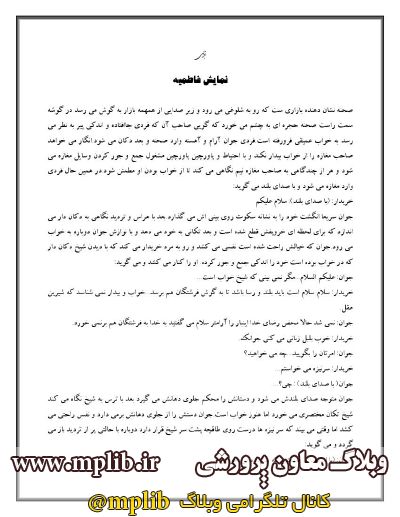 نمایش فاطمیه
صحنه نشان دهنده بازاری ست که رو به شلوغی می رود و زیر صدایی از همهمه بازار به گوش می رسد در گوشه
سمت راست صحنه حجره ای به چشم می خورد که گویی صاحب آن که فردی جاافتاده و اندکی پیر به نظر می
رسد به خواب عمیقی فرورفته است فردی جوان آرام و آهسته وارد صحنه و بعد دکان می شود انگار می خواهد
صاحب مغازه را از خواب بیدار نکند و با احتیاط و پاورچین پاورچین مشغول جمع و جور کردن وسایل مغازه می
شود و هر از چندگاهی به صاحب مغازه نیم نگاهی می کند تا از خواب بودن او مطمئن شود در همین حال فردی
وارد مغازه می شود و با صدای بلند می گوید:
خریدار: (با صدای بلند): سلام علیکم
جوان سریعا انگشت خود را به نشانه سکوت روی بینی اش می گذارد بعد با هراس و تردید نگاهی به دکان دار می
اندازد که برای لحظه ای خروپفش قطع شده است و بعد تکانی به خود می دهد و با نوازش جوان دوباره به خواب
می رود جوان که خیالش راحت شده است نفسی می کشد و رو به مرد خریدار می کند که با دیدن شیخ دکان دار
که در خواب بوده است خود را اندکی جمع و جور کرده. او را کنار می کشد و می گوید:
جوان: علیکم السلام ...مگر نمی بینی که شیخ خواب است...
خریدار: سلام سلام است باید بلند و رسا باشد تا به گوش فرشتگان هم برسد. خواب و بیدار نمی شناسد که شیرین
عقل
جوان: نمی شد حالا محض رضای خدا اینبار را آرامتر سلام می گفتید به خدا به فرشتگان هم برنمی خورد.
خریدار: خوب بلبل زبانی می کنی جوانک
جوان: امرتان را بگویید...چه می خواهید؟
خریدار: سرنیزه می خواستم...
جوان( با صدای بلند) : چی؟
جوان متوجه صدای بلندش می شود و دستانش را محکم جلوی دهانش می گیرد بعد با ترس به شیخ نگاه می کند
شیخ تکان مختصری می خورد اما هنوز خواب است جوان دستش را از جلوی دهانش برمی دارد و نفس راحتی می
کشد اما وقتی می بیند که سر نیزه ها درست روی طاقچه پشت سر شیخ قرار دارد دوباره با حالتی پر از تردید باز می
گردد و می گوید:
وبلاگ معاون پرورشی www.mplib.ir
کانال تلگرامی وبلاگ mplib@